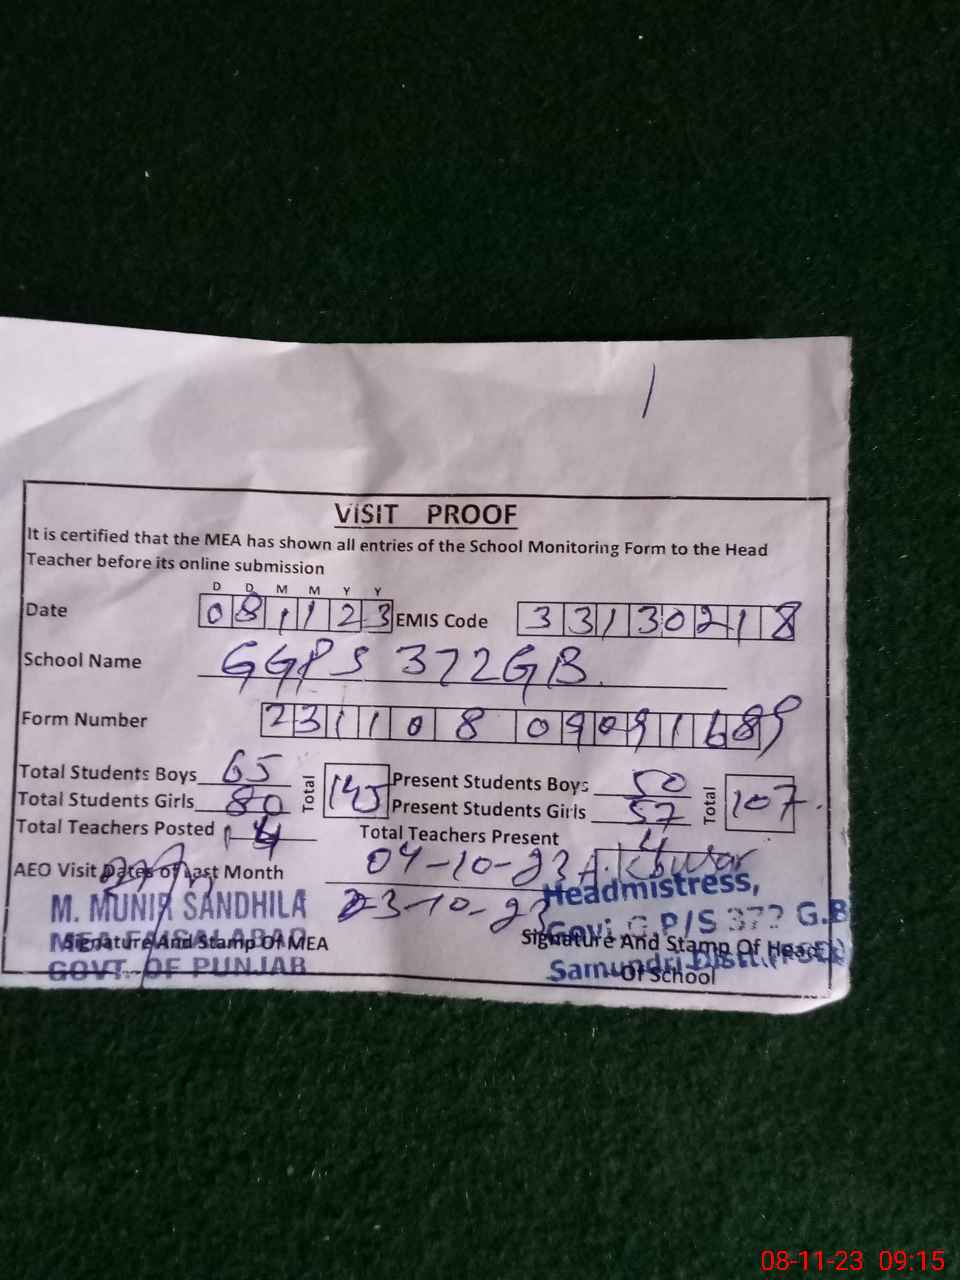 VISIT PROOF
It is certified that the MEA has shown all entries of the School Monitoring Form to the Head
Teacher before its online submission
D D M M Y Y
Date 08 11 23 EMIS Code 33130218
School Name GGPS 372GB
Form Number 2311080909168 9
Total Students Boys 65 Total 145 Present Students Boys 50 Total 107
Total Students Girls 80 Present Students Girls 57
Total Teachers Posted 4 Total Teachers Present 4
AEO Visit Dates of Last Month 04-10-23
23-10-23
M. MUNIR SANDHILA
MEA FAISALABAD
GOVT. OF PUNJAB
Signature And Stamp Of MEA
Headmistress,
Govt G.P/S 372 G.B
Samundri Distt.
Signature And Stamp Of Head
Of School
08-11-23 09:15